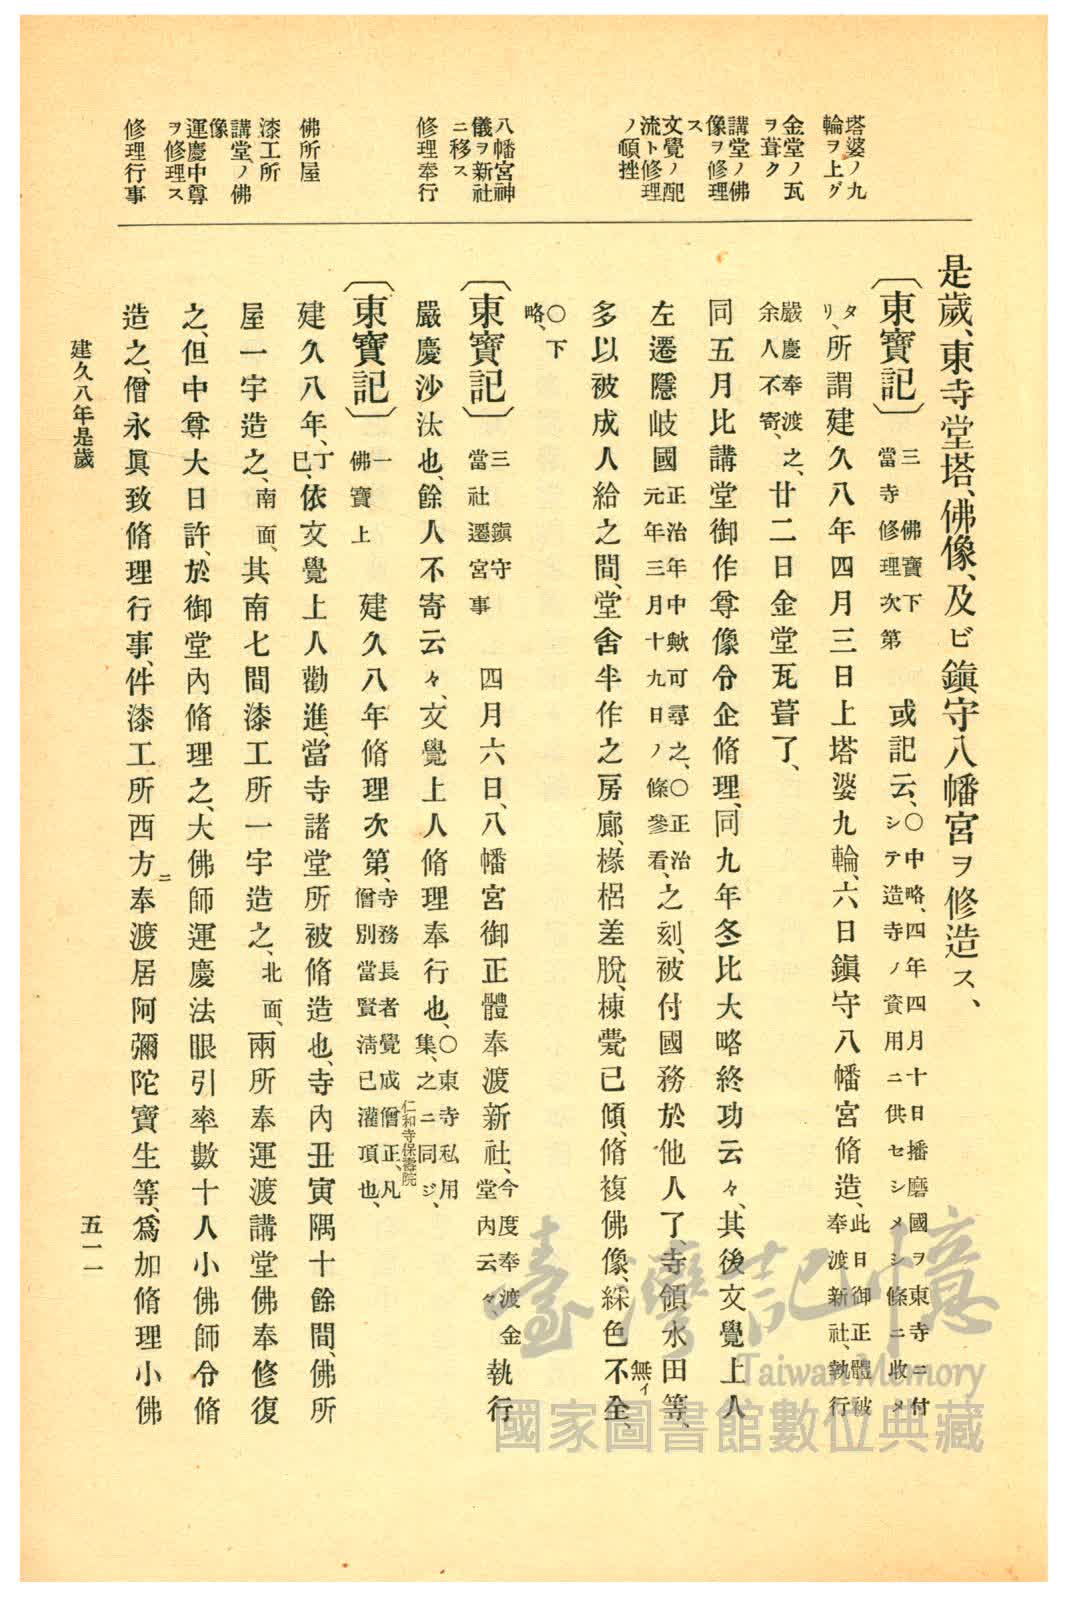 塔婆ノ九
輪ヲ上グ
金堂ノ瓦
ヲ葺ク
講堂ノ佛
像ヲ修理
ス
文覺ノ配
流ト修理
ノ頓挫
八幡宮神
儀ヲ新社
ニ移ス
修理奉行
佛所屋
漆工所
講堂ノ佛
像
運慶中尊
ヲ修理ス
修理行事
是歲、東寺堂塔、佛像、及ビ鎭守八幡宮ヲ修造ス、
〔東寶記〕三佛寶下當寺修理次第 或記云、〇中略、四年四月十日播磨國ヲ東寺ニ付シテ造寺ノ資用ニ供セシメシ條ニ收メ
タリ、所謂建久八年四月三日上塔婆九輪、六日鎭守八幡宮脩造、此日御正體被奉渡新社、執行
嚴慶奉渡之、余人不寄、廿二日金堂瓦葺了、
同五月比講堂御作尊像令企脩理、同九年冬比大略終功云々、其後文覺上人
左遷隱岐國正治年中歟可尋之、〇正治元年三月十九日ノ條參看、之刻、被付國務於他人了寺領水田等、
多以被成人給之間、堂舍半作之房廊、椽梠差脫、棟甍已傾、脩複佛像、綵色不無イ全、
〇下略、
〔東寶記〕三鎭守當社遷宮事 四月六日、八幡宮御正體奉渡新社、今度奉渡金堂內云々、執行
嚴慶沙汰也、餘人不寄云々、文覺上人脩理奉行也、〇東寺私用集、之ニ同ジ、
〔東寶記〕一佛寶上 建久八年脩理次第、寺務長者覺成僧正、凡僧別當賢淸已灌頂也、仁和寺保壽院
建久八年、丁巳、依文覺上人勸進、當寺諸堂所被脩造也、寺內丑寅隅十餘間、佛所
屋一宇造之、南面、其南七間漆工所一宇造之、北面、兩所奉運渡講堂佛奉修復
之、但中尊大日許、於御堂內脩理之、大佛師運慶法眼引率數十人小佛師令脩
造之、僧永眞致脩理行事、件漆工所西方ニ奉渡居阿彌陀寶生等、爲加脩理小佛
建久八年是歲
五一一
臺灣記憶
Taiwan Memory
國家圖書館數位典藏